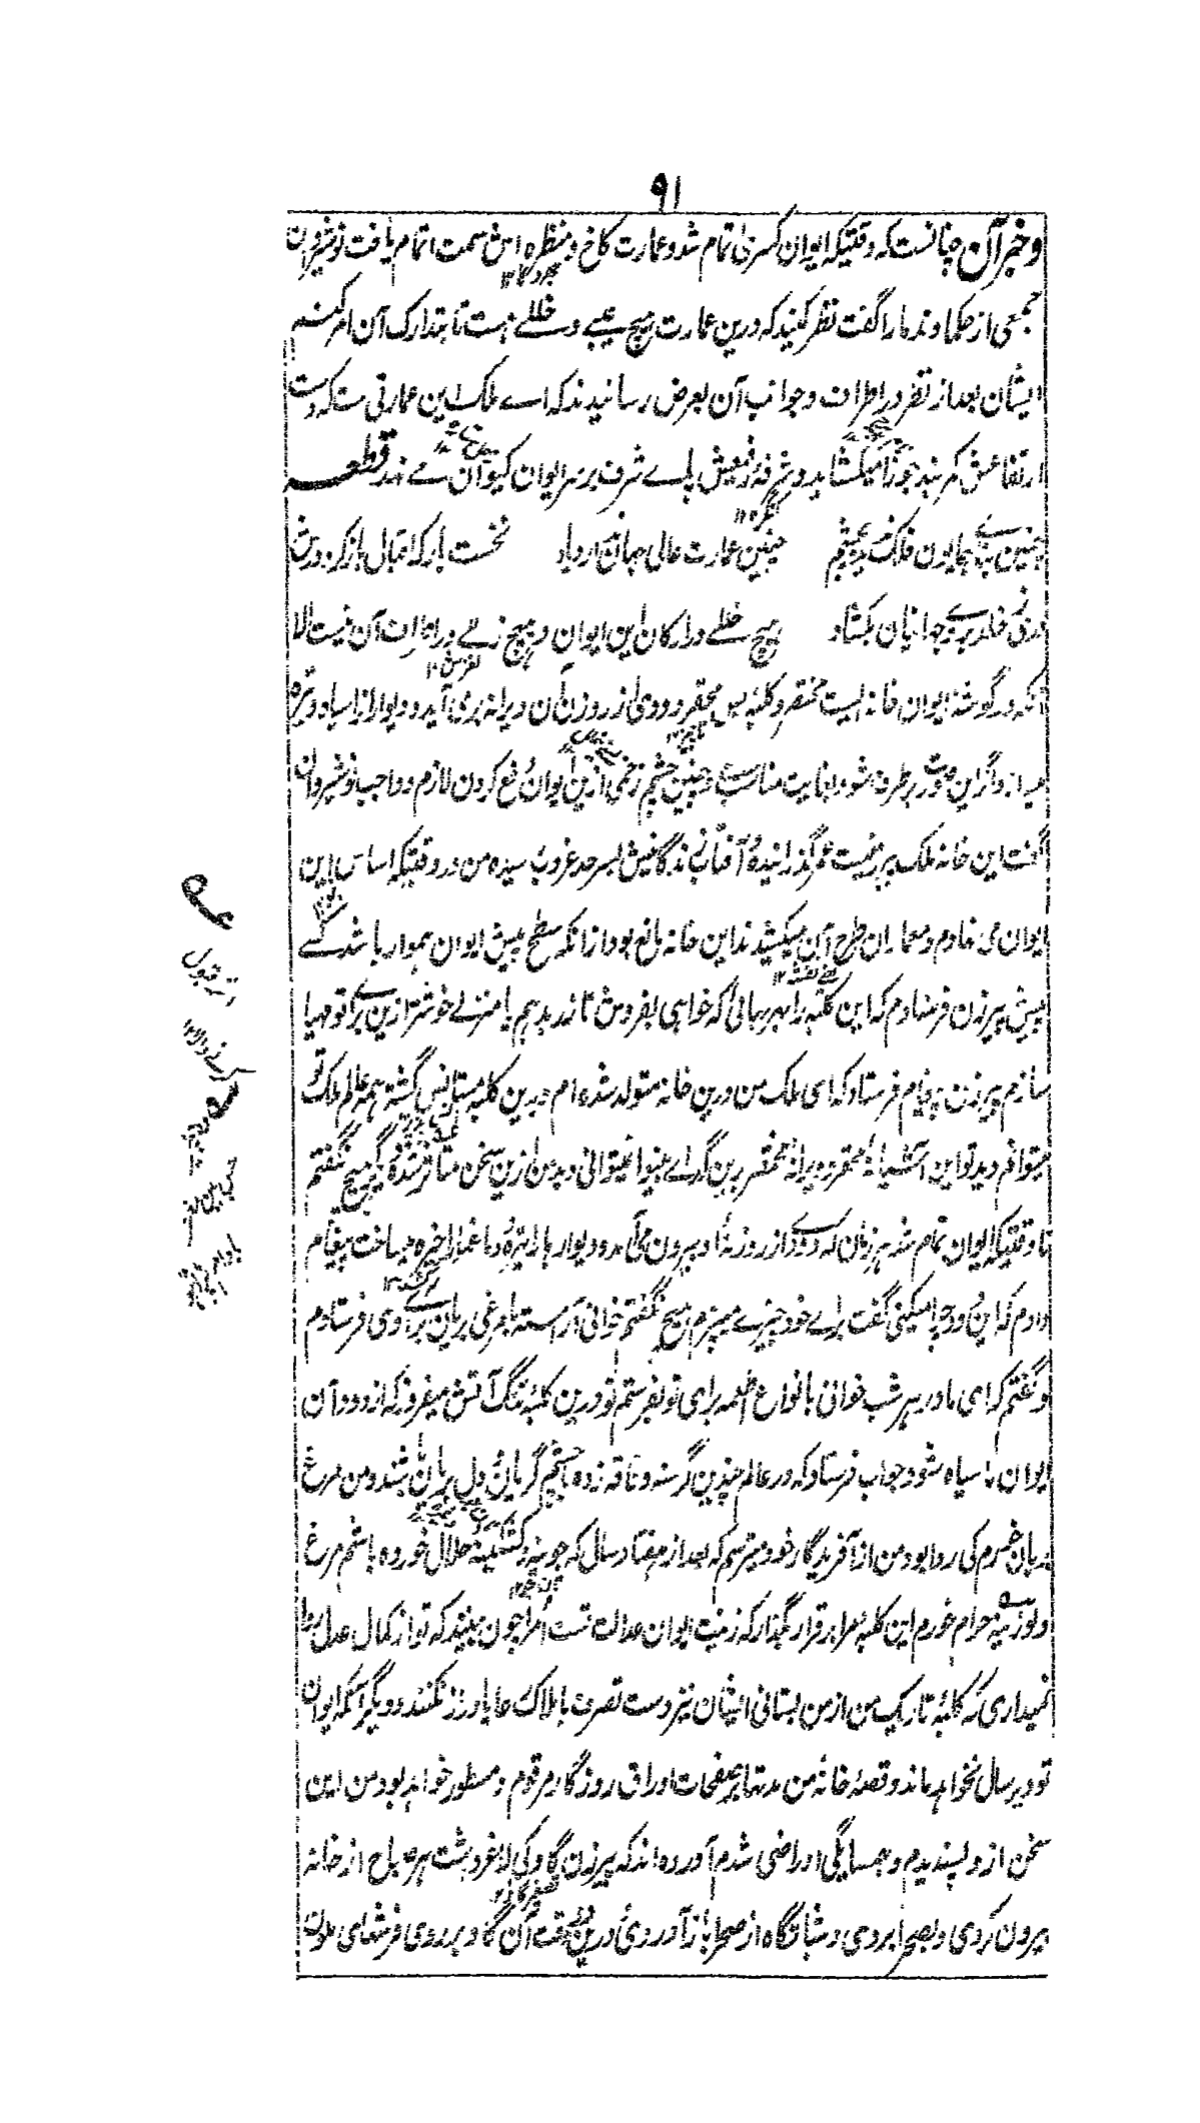 ۹۱
و خبر آن چنانست که وقتیکه ایوان کسری تمام شد و عمارت کاخ و منظره اش سمت اتمام یافت نوشیروان
جمعی از حکما و ندما را گفت نظر کنید که درین عمارت هیچ عیبے و خللے هست تا بتدارک آن امر کنم
ایشان بعد از نظر در اطراف و جوانب آن بعرض رسانیدند که اے ملک این عمارتی ست که دست
ارتفاعش کمر بند جوزا میکشاید و شرفه رفیعش پاے شرف بر سر ایوان کیوان مے نهد قطعه
چنین عمارت عالی جهان ندارد یاد نخست بار که اقبال باز کرد درش
هیچ خللے در ارکان این ایوان و هیچ زللے در اطراف آن نیست الا
آنکه در گوشهٔ ایوان خانه ایست مختصر و کلبه بس محقر و دودی از روزن آن ویرانه برمی آید و دیوار را سیاه و تیره
میسازد اگر این صورت بر طرف شود بغایت مناسب ست و چنین چشم زخمی ازین ایوان دفع کردن لازم و واجب نوشیروان
گفت این خانه ملک پیرزنیست عمر گذرانیده و آفتاب زندگانیش بسرحد غروب رسیده من در وقتیکه اساس این
ایوان می نهادم و معماران طرح این میکشیدند این خانه مانع بود از آنکه سطح پیش ایوان هموار باشد کسے
پیش پیرزن فرستادم که این کلبه را بهر بهائی که خواهی بفروش تا زر بدهم یا منزلے خوشتر ازین براے تو مهیا
سازم پیرزن پیغام فرستاد که ای ملک من درین خانه متولد شده ام و بدین کلبه مستانس گشته همه عالم ملک تو
میتوانم دید تو این آشیانهٔ محقر و ویرانهٔ مختصر بر من گداے بینوا نمیتوانی دید من ازین سخن متاثر شده دیگر هیچ نگفتم
تا وقتیکه ایوان تمام شد هر زمان که دودے از روزنه او بیرون می آمد و دیوار ها را تیره و دماغها را خیره میساخت پیغام
دادم که این دود چرا میکنی گفت براے خود چیزے میپزم هیچ نگفتم خوانی آراسته با مرغی بریان براے وی فرستادم
و گفتم که ای مادر هر شب خوانی با انواع اطعمه برای تو بفرستم تو درین کلبهٔ تنگ آتش میفروز که از دود آن
ایوان ما سیاه شود جواب فرستاد که در عالم چندین گرسنه و فاقه زده با چشم گریان و دل بریان باشند و من مرغ
بریان خورم کی روا بود من از آفریدگار خود میترسم که بعد از هفتاد سال که جوینه و کشکینهٔ حلال خورده باشم مرغ
و لوزینهٔ حرام خورم این کلبهٔ مرا برقرار بگذار که زینت ایوان عدالت تست امرا چون ببینند که تو از کمال عدل روا
نمیداری که کلبهٔ تاریک من از من بستانی ایشان نیز دست تصرف باملاک رعایا دراز نکنند و دیگر آنکه ایوان
تو دیر سال نخواهد ماند و قصهٔ خانهٔ من مدتها بر صفحات اوراق روزگار مرقوم و مسطور خواهد بود من این
سخن از و پسندیدم و بهمسایگی او راضی شدم آورده اند که پیرزن گاوکی لاغر داشت هر صباح از خانه
بیرون کردی و بصحرا بردی و شبانگاه از صحرا باز آوردی درین وقت آن گاو بر روی فرشهای ملون